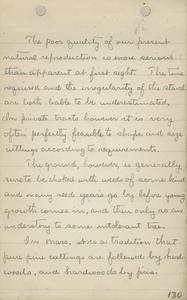 The poor quality of our present
natural reproduction is more serious
than apparent at first sight. The time
required and the irregularity of the stand
are both liable to be underestimated.
In private tracts however it is very
often perfectly feasible to shape and size
cuttings according to requirements.
The ground, however, is generally
sure to be choked with weeds of some kind
and many seed years go by before young
growth comes in, and then only as an
understory to some intolerant tree.
In Mass. there is a tradition that
pure pine cuttings are followed by hard-
woods, and hardwoods by pine.
130